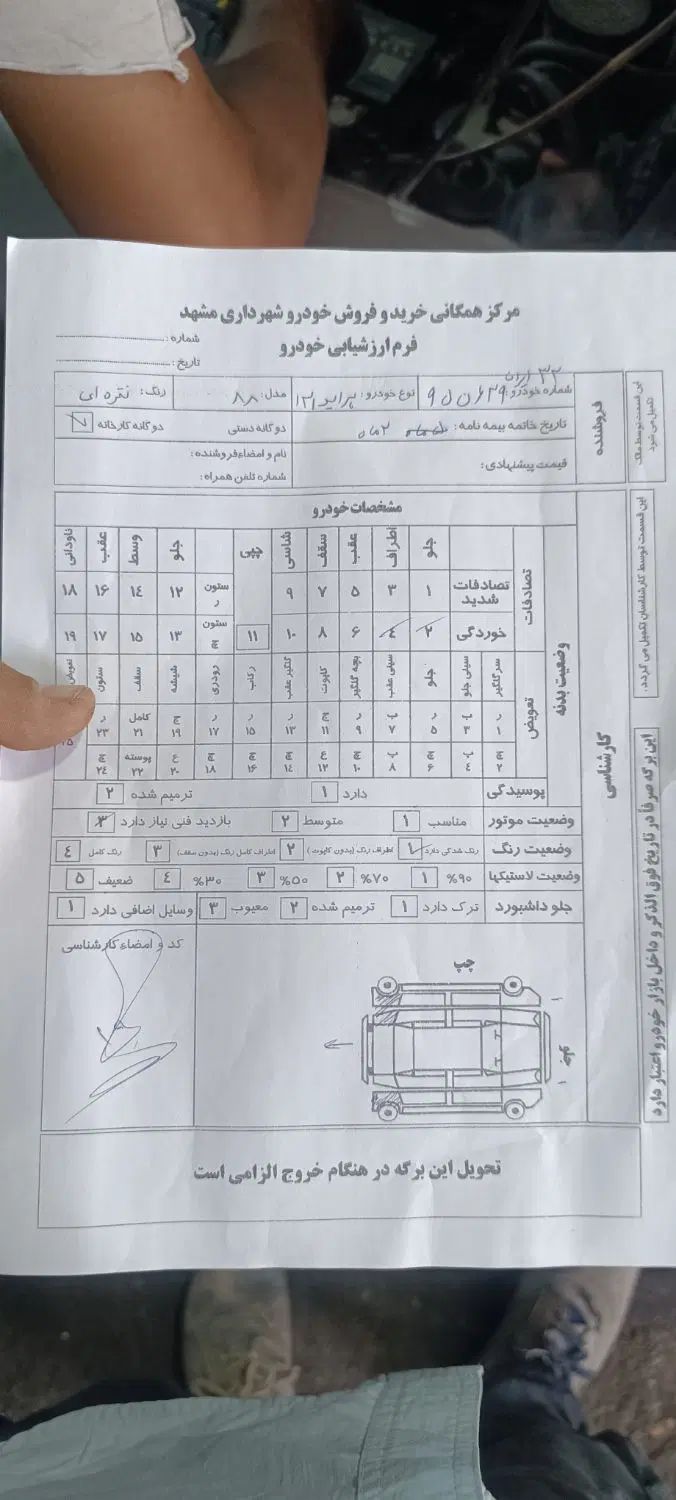 مرکز همگانی خرید و فروش خودرو شهرداری مشهد
فرم ارزشیابی خودرو
شماره:
تاریخ:
این قسمت توسط مالک تکمیل می شود
فروشنده
شماره خودرو: نوع خودرو: پراید ۱۳۱ مدل: ۸۸ رنگ: نقره ای
تاریخ خاتمه بیمه نامه: دوگانه دستی دوگانه کارخانه
قیمت پیشنهادی: نام و امضاء فروشنده:
شماره تلفن همراه:
این قسمت توسط کارشناسان تکمیل می گردد.
کارشناسی
مشخصات خودرو
وضعیت بدنه
تصادفات
جلو اطراف عقب سقف شاسی جلو وسط عقب ناودانی
تصادفات شدید ۱ ۳ ۵ ۷ ۹ ستون ر ۱۲ ۱۴ ۱۶ ۱۸
خوردگی ۲ ۴ ۶ ۸ ۱۰ ۱۱ ستون چ ۱۳ ۱۵ ۱۷ ۱۹
تعویض
سرگلگیر سینی جلو جلو سینی عقب بچه گلگیر کاپوت گلگیر عقب رکاب رودری شیشه سقف ستون تعویض
ر ۱ ۳ ر ۵ ۷ ر ۹ ۱۱ ر ۱۳ ر ۱۵ ر ۱۷ ۱۹ کامل ۲۱ ر ۲۳
چ ۲ ۴ چ ۶ ۸ چ ۱۰ ع ۱۲ چ ۱۴ چ ۱۶ چ ۱۸ ع ۲۰ پوسته ۲۲ چ ۲۴
پوسیدگی دارد ۱ ترمیم شده ۲
وضعیت موتور مناسب ۱ متوسط ۲ بازدید فنی نیاز دارد ۳
وضعیت رنگ رنگ شدگی دارد ۱ اطراف رنگ (بدون کاپوت) ۲ اطراف کامل رنگ (بدون سقف) ۳ رنگ کامل ۴
وضعیت لاستیکها %۹۰ ۱ %۷۰ ۲ %۵۰ ۳ %۳۰ ۴ ضعیف ۵
جلو داشبورد ترک دارد ۱ ترمیم شده ۲ معیوب ۳ وسایل اضافی دارد ۱
کد و امضاء کارشناسی
چپ
این برگه صرفا در تاریخ فوق الذکر و داخل بازار خودرو اعتبار دارد
تحویل این برگه در هنگام خروج الزامی است